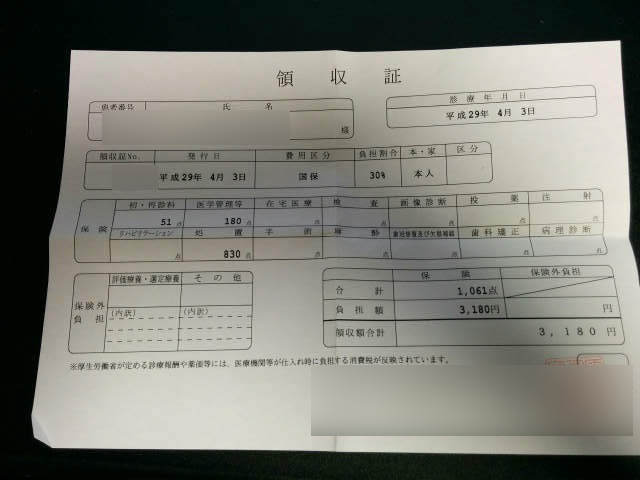 領収証
患者番号 氏名
様
診療年月日
平成29年 4月 3日
領収証No. 発行日 費用区分 負担割合 本・家 区分
平成29年 4月 3日 国保 30% 本人
保険
初・再診料 医学管理等 在宅医療 検査 画像診断 投薬 注射
51点 180点 点 点 点 点 点
リハビリテーション 処置 手術 麻酔 歯冠修復及び欠損補綴 歯科矯正 病理診断
点 830点 点 点 点 点 点
保険外負担
評価療養・選定療養 その他
(内訳) (内訳)
保険 保険外負担
合計 1,061点
負担額 3,180円 円
領収額合計 3,180円
※厚生労働省が定める診療報酬や薬価等には、医療機関等が仕入れ時に負担する消費税が反映されています。